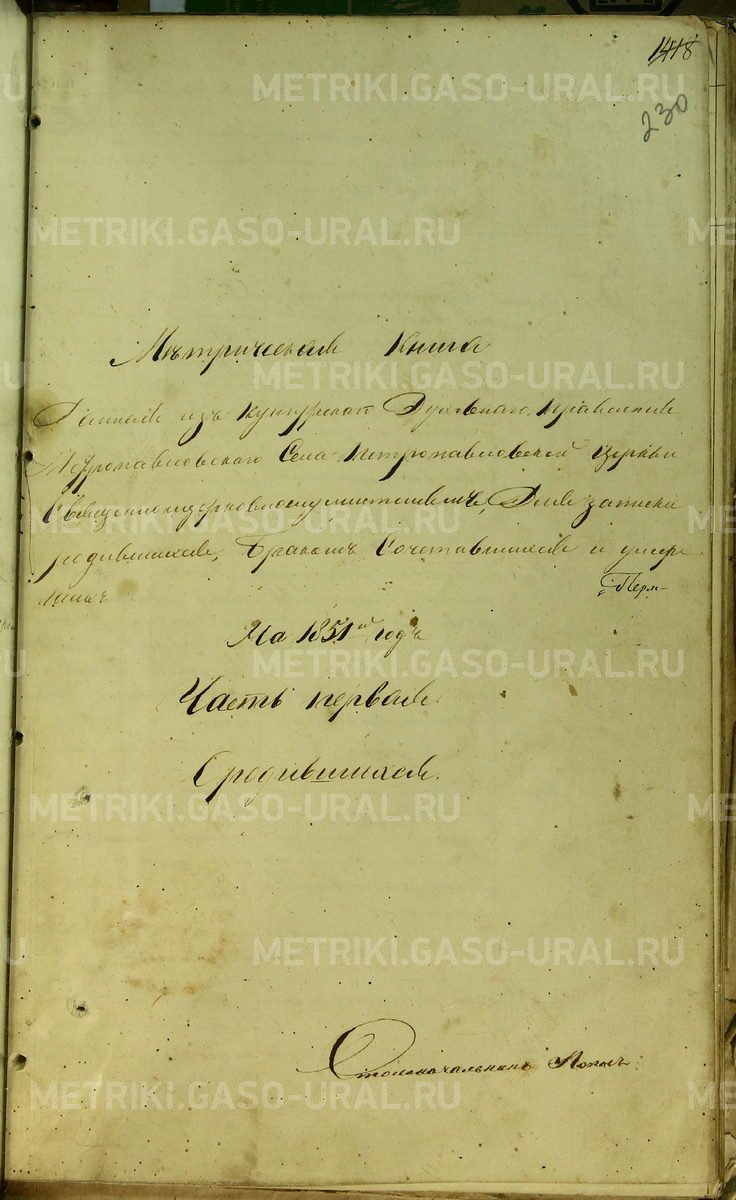 1418
230
METRIKI.GASO-URAL.RU
Метрическая Книга
Данная изъ Кунгурскаго Духовнаго Правления
Петропавловскаго Села Петропавловской Церкви
Священноцерковнослужителямъ, Для записки
родившихся, Бракомъ Сочетавшихся и умер
шихъ
На 1851й годъ
Часть первая
О родившихся.
Столоначальникъ